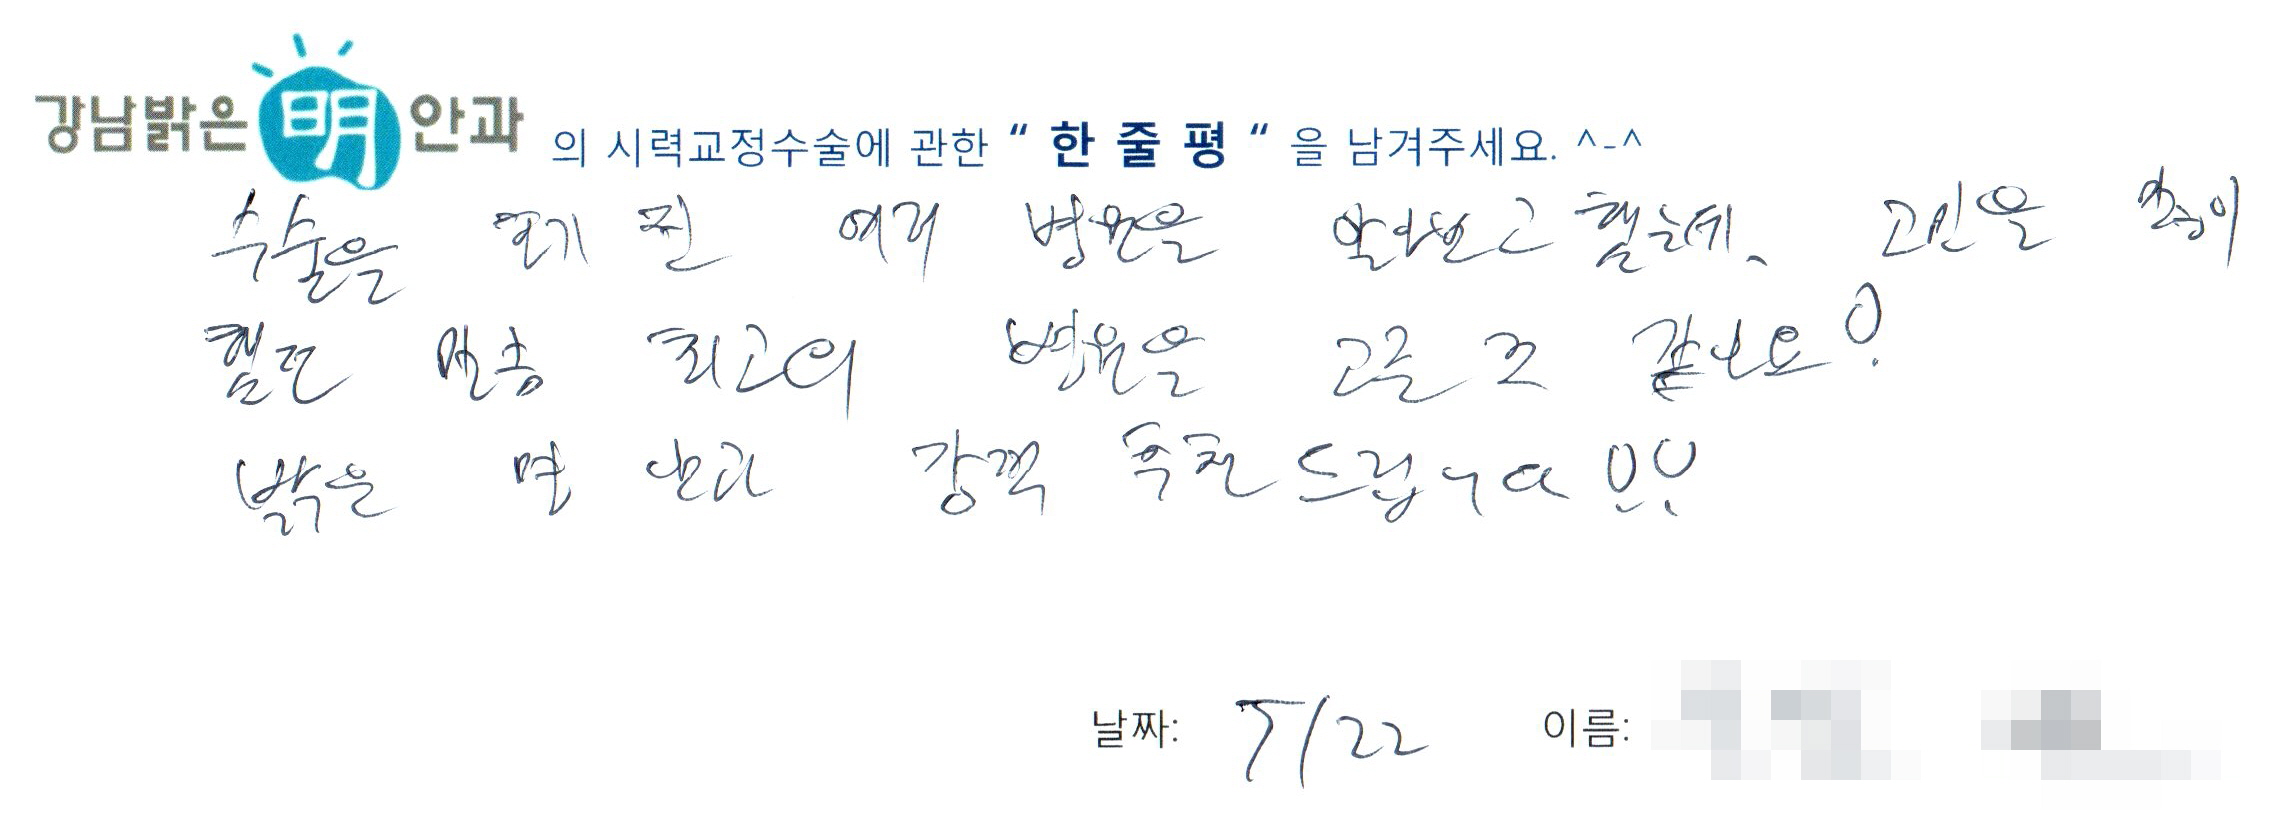 강남밝은 明 안과 의 시력교정수술에 관한 " 한 줄 평 " 을 남겨주세요. ^-^
수술을 하기 전 여러 병원을 알아보고 했는데, 고민을 많이
했던 만큼 최고의 병원을 고른 것 같아요!
밝은 명 안과 강력 추천드립니다!!
날짜: 5/22 이름: